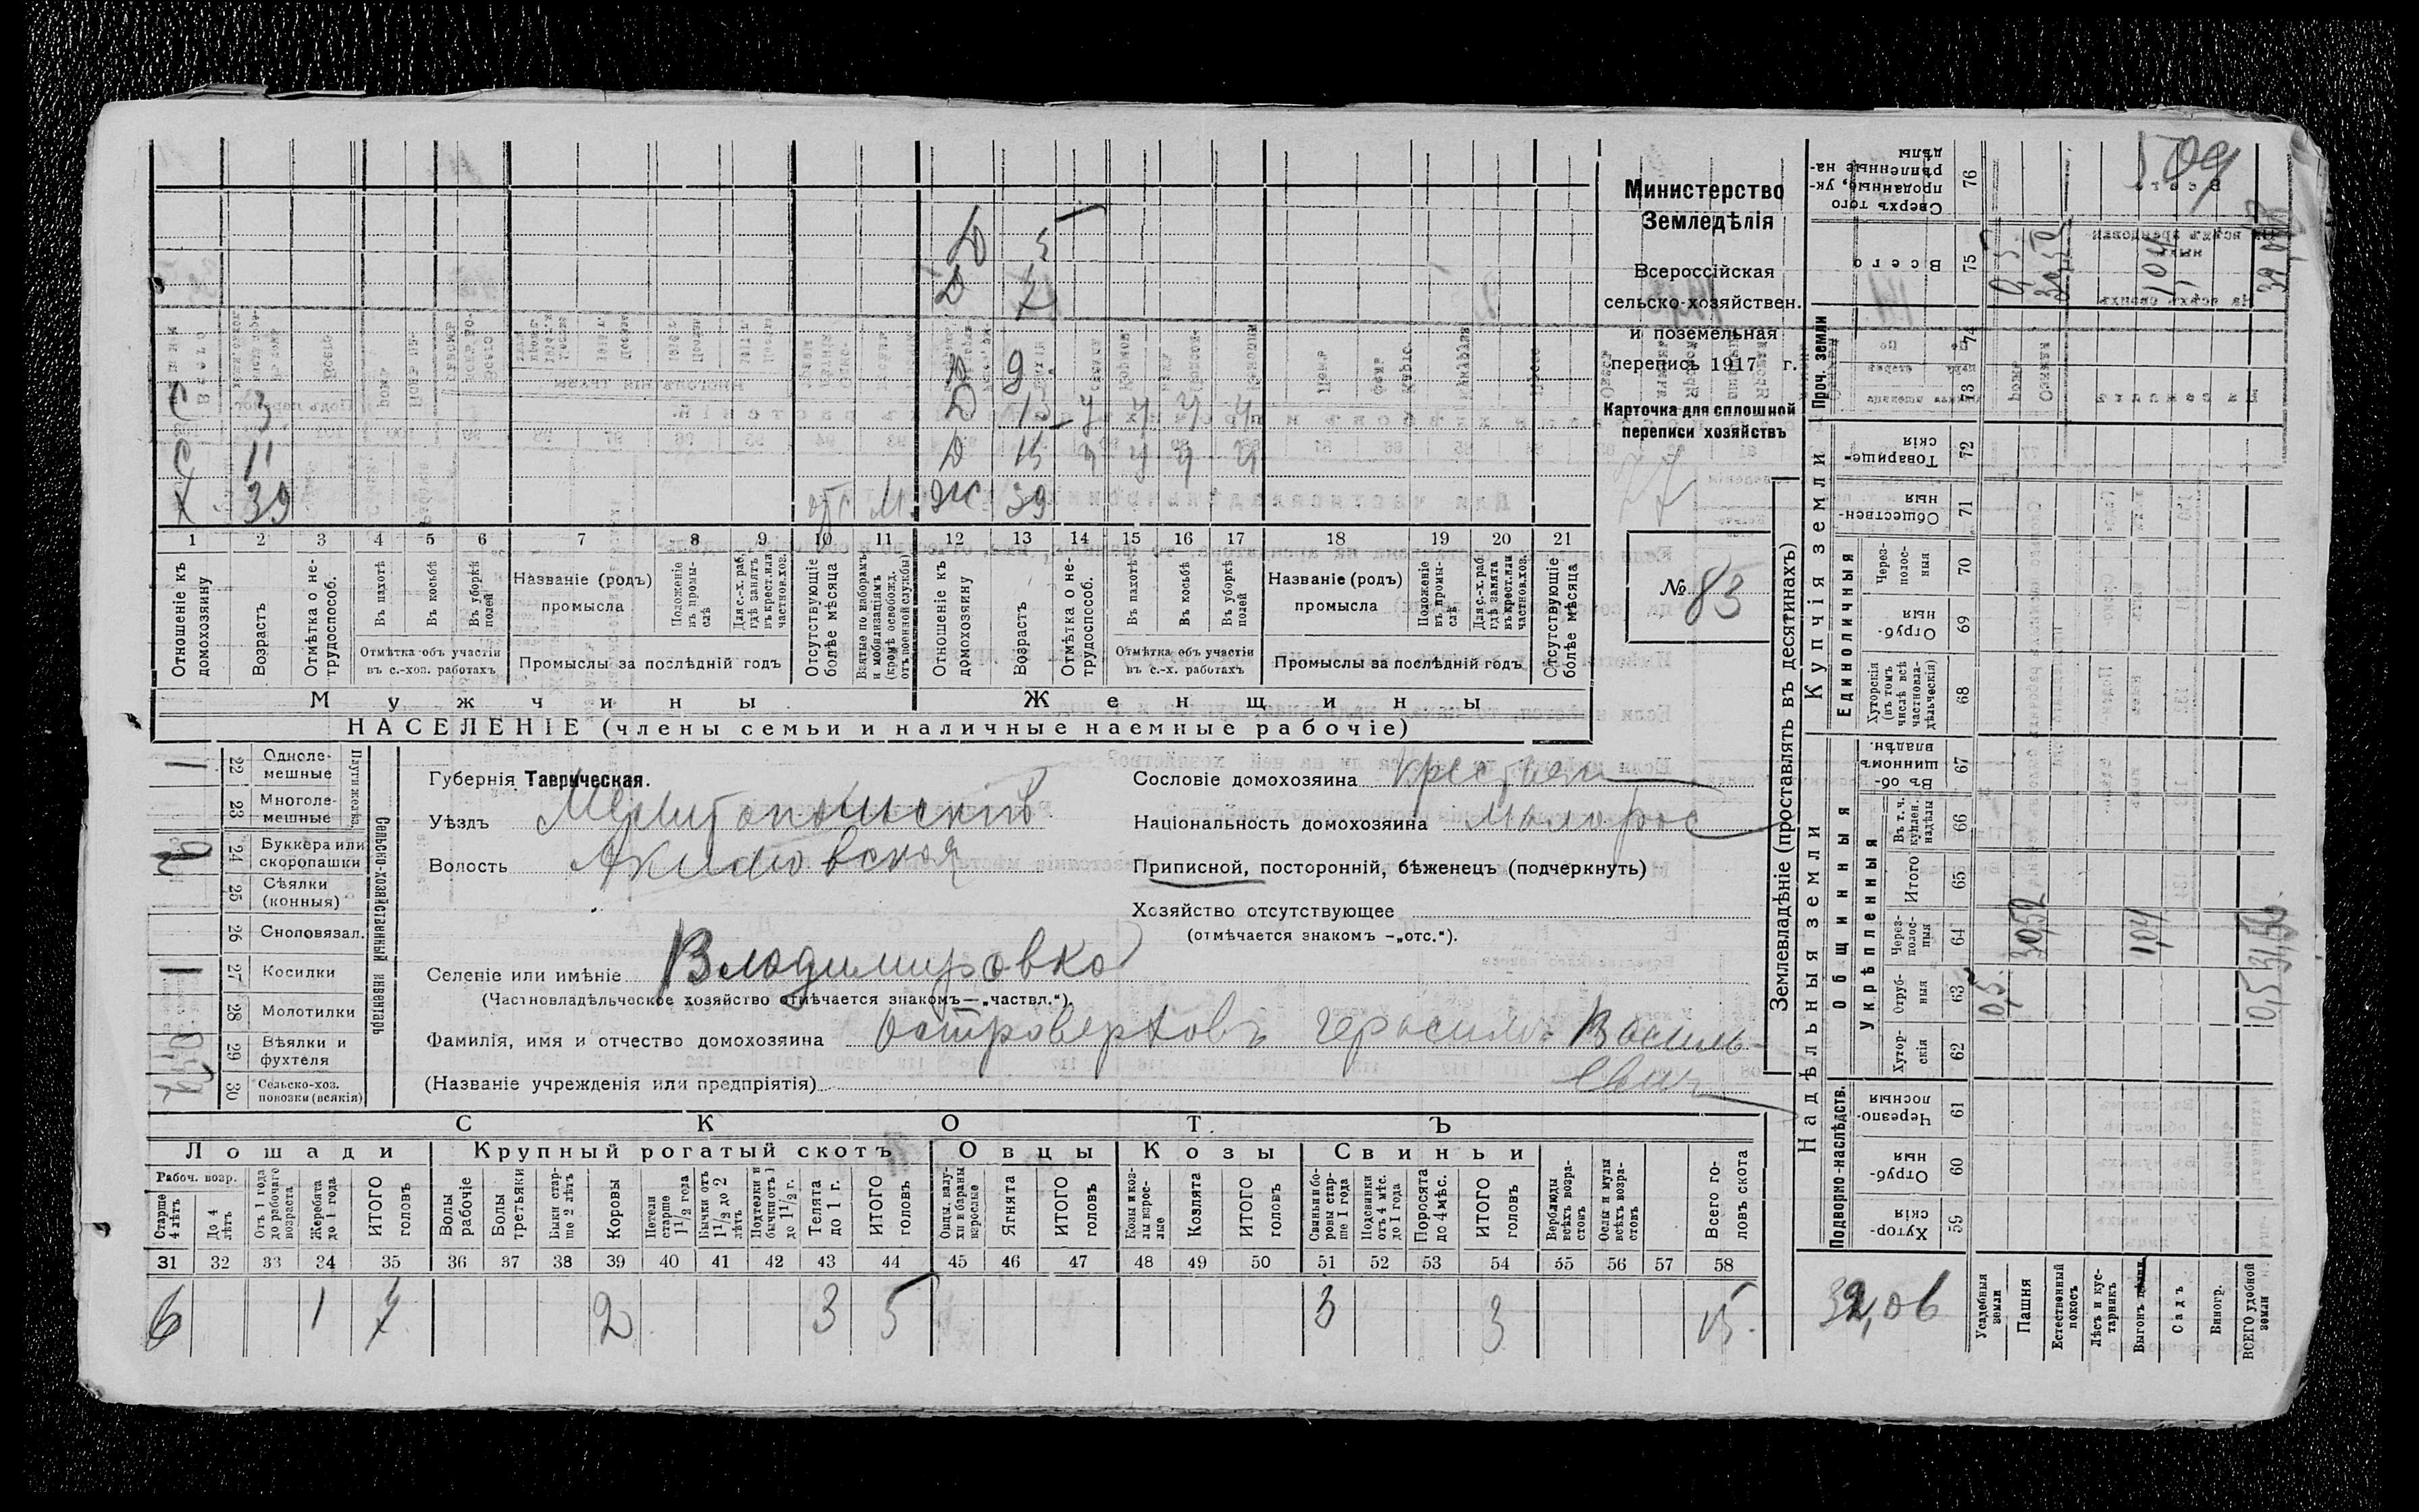 Министерство
Земледѣлія
Всероссійская
сельско-хозяйствен.
и поземельная
перепись 1917 г.
Карточка для сплошной
переписи хозяйствъ
77
№ 83
509
Х 39 отс М. Ж 39
С 11 Д 15 У У У У
С 3 Д 13 У У У У
Д 9
Д 7
Д 5
1 2 3 4 5 6 7 8 9 10 11 12 13 14 15 16 17 18 19 20 21
Отношеніе къ домохозяину
Возрастъ
Отмѣтка о нетрудоспособ.
Въ пахотѣ
Въ косьбѣ
Въ уборкѣ полей
Отмѣтка объ участіи въ с.-хоз. работахъ
Названіе (родъ) промысла
Положеніе въ промыслѣ
Для с.-х. раб. гдѣ занятъ въ крест. или частновл. хоз.
Промыслы за послѣдній годъ
Отсутствующіе болѣе мѣсяца
Взятые по наборамъ и мобилизаціямъ (кромѣ освобожд. отъ военной службы)
Отношеніе къ домохозяину
Возрастъ
Отмѣтка о нетрудоспособ.
Въ пахотѣ
Въ косьбѣ
Въ уборкѣ полей
Отмѣтка объ участіи въ с.-х. работахъ
Названіе (родъ) промысла
Положеніе въ промыслѣ
Для с.-х. раб. гдѣ занята въ крест. или частнов. хоз.
Промыслы за послѣдній годъ
Отсутствующіе болѣе мѣсяца
Мужчины Женщины
НАСЕЛЕНІЕ (члены семьи и наличные наемные рабочіе)
Сельско-хозяйственный инвентарь
Плуги желѣз.
22 Одноле-мешные 1
23 Многоле-мешные
24 Буккера или скоропашки 2
25 Сѣялки (конныя)
26 Сноповязал.
27 Косилки 1
28 Молотилки
29 Вѣялки и фухтеля
30 Сельско-хоз. повозки (всякія) 2
Губернія Таврическая.
Уѣздъ Мелитопольскій
Волость Акимовская
Селеніе или имѣніе Владимировка
(Частновладѣльческое хозяйство отмѣчается знакомъ—„частвл.“).
Фамилія, имя и отчество домохозяина Островерховъ Герасимъ Василь-
евич
(Названіе учрежденія или предпріятія)
Сословіе домохозяина крестьян
Національность домохозяина малорос
Приписной, посторонній, бѣженецъ (подчеркнуть)
Хозяйство отсутствующее
(отмѣчается знакомъ —„отс.“).
СКОТЪ
Лошади Крупный рогатый скотъ Овцы Козы Свиньи
Рабоч. возр.
Старше 4 лѣтъ
До 4 лѣтъ
Отъ 1 года до рабочаго возраста
Жеребята до 1 года
ИТОГО головъ
Волы рабочіе
Волы третьяки
Быки старше 2 лѣтъ
Коровы
Нетели старше 1 1/2 года
Бычки отъ 1 1/2 до 2 лѣтъ
Подтелки и бычки отъ 1 до 1 1/2 г.
Телята до 1 г.
ИТОГО головъ
Овцы, валухи и бараны взрослые
Ягнята
ИТОГО головъ
Козы и козлы взрослые
Козлята
ИТОГО головъ
Свиньи и боровы старше 1 года
Подсвинки отъ 4 мѣс. до 1 года
Поросята до 4 мѣс.
ИТОГО головъ
Верблюды всѣхъ возрастовъ
Ослы и мулы всѣхъ возрастовъ
Всего головъ скота
31 32 33 34 35 36 37 38 39 40 41 42 43 44 45 46 47 48 49 50 51 52 53 54 55 56 57 58
6 1 7 2 3 5 3 3 15
Землевладѣніе (проставлять въ десятинахъ)
Надѣльныя земли
Купчія земли
Проч. земли
Подворно-наслѣдств.
Общинныя
Укрѣпленныя
Единоличныя
Хуторскія 59
Отрубныя 60
Черезполосныя 61
Хуторскія 62
Отрубныя 63
Черезполосныя 64
Итого 65
Въ т. ч. куплен. надѣлы 66
Въ общинномъ владѣн. 67
Хуторскія (въ томъ числѣ всѣ частновладѣльческія) 68
Отрубныя 69
Черезполосныя 70
Общественныя 71
Товарищескія 72
73
74
Всего 75
Сверхъ того проданные, укрѣпленные надѣлы 76
Усадебныя земли 0,5 0,5
Пашня 30,52 30,52
Естественный покосъ
Лѣсъ и кустарникъ
Выгонъ 1,04 1,04
Садъ
Виногр.
ВСЕГО удобной земли 0,5 31,56
32,06